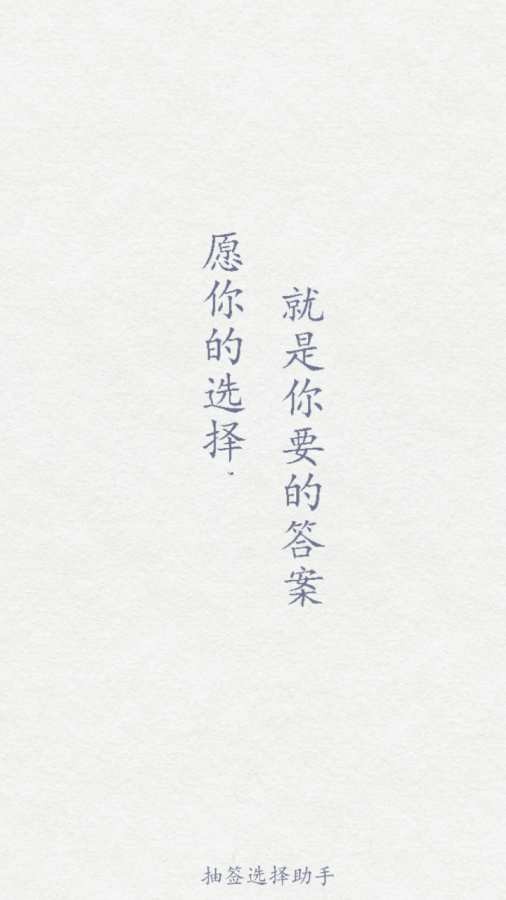 愿你的选择，
就是你要的答案
抽签选择助手